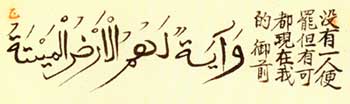 没有一人便
罷但有可
都現在我
的御前
وَآيَةٌ لَهُمُ الْأَرْضُ الْمَيْتَةُ